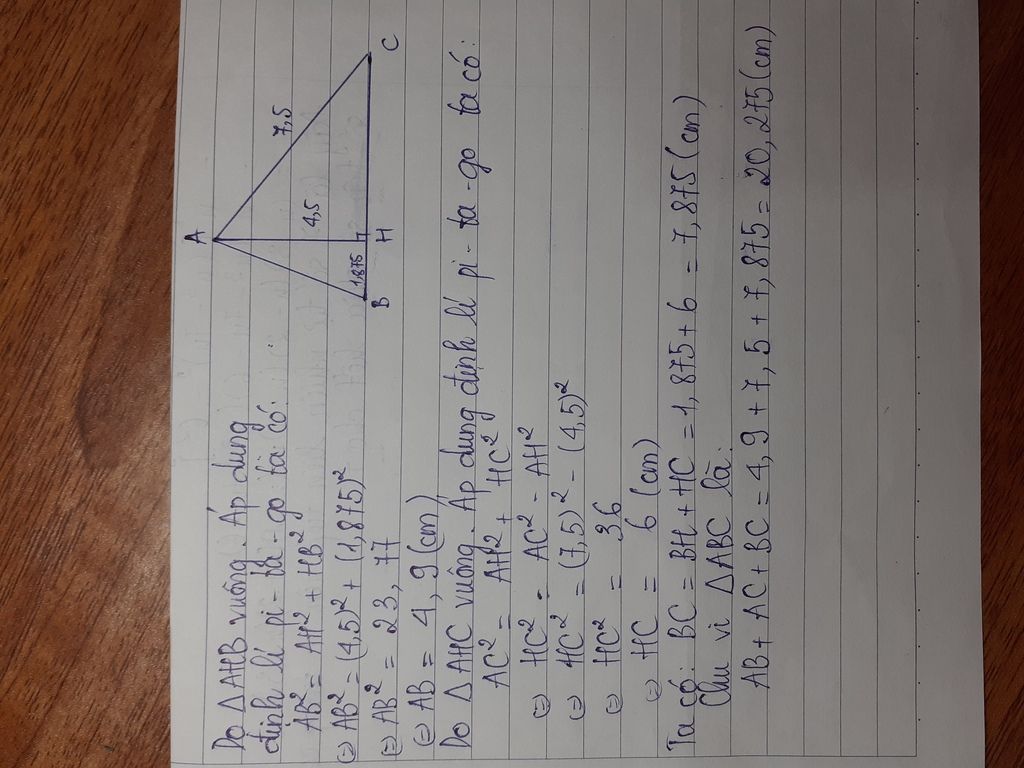 Do △AHB vuông. Áp dụng
định lí pi - ta - go ta có:
AB² = AH² + HB²
(=) AB² = (4,5)² + (1,875)²
(=) AB² = 23,77
(=) AB = 4,9 (cm)
A
7,5
4,5
1,875
B
H
C
Do △AHC vuông. Áp dụng định lí pi - ta - go ta có:
AC² = AH² + HC²
(=) HC² = AC² - AH²
(=) HC² = (7,5)² - (4,5)²
(=) HC² = 36
(=) HC = 6 (cm)
Ta có: BC = BH + HC = 1,875 + 6 = 7,875 (cm)
Chu vi △ABC là:
AB + AC + BC = 4,9 + 7,5 + 7,875 = 20,275 (cm)